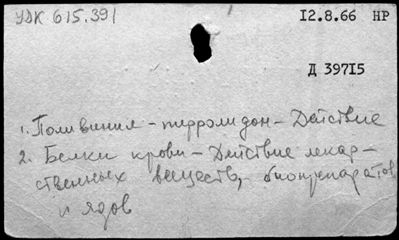 УДК 615.391
12.8.66 НР
Д 39715
1. Поливинил-пирролидон - Действие
2. Белки крови - Действие лекар-
ственных веществ, биопрепаратов
и ядов